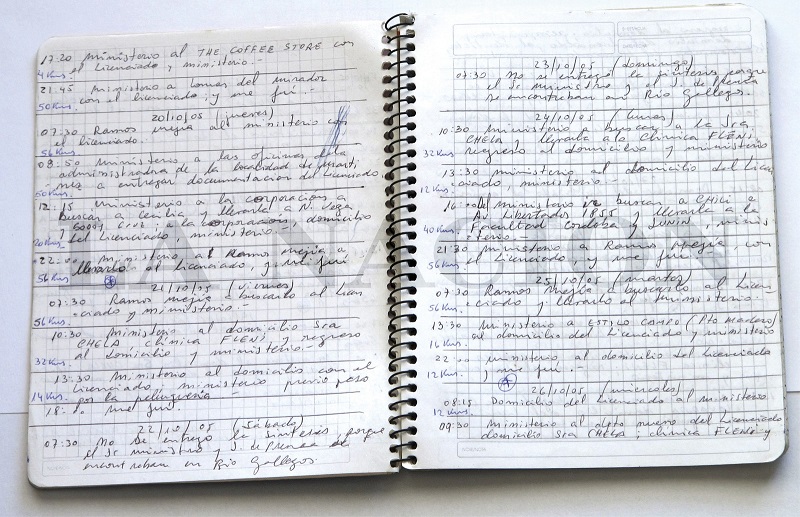 17:20 ministerio al THE COFFEE STORE con
el Licenciado y ministerio.-
4 Kms.
21:45 ministerio a Lomas del mirador
con el licenciado, y me fui.-
50 Kms.
20/10/05 (jueves)
07:30 Ramos mejia al ministerio con
el licenciado.
56 Kms
08:50 ministerio a las oficinas de la
administradora de la localidad de Martinez
a entregar documentacion del Licenciado
50 Kms.
12:15 ministerio a la corporacion a
buscar a Cecilia y llevarla a N. Vega
y Cruz, a la corporacion, domicilio
del Licenciado, ministerio.-
20 Kms
22:00 ministerio al Ramos mejia a
llevarlo al Licenciado, y me fui
56 Kms
21/10/05 (viernes)
07:30 Ramos mejia a buscarlo al Licen
ciado y ministerio.-
56 Kms.
10:30 ministerio al domicilio Sra
CHELA, clinica FLENI y regreso
al domicilio y ministerio.-
32 Kms
13:30 ministerio al domicilio con el
Licenciado, ministerio previo paso
por la peluqueria.-
14 Kms
18: me fui.
22/10/05 (sabado)
07:30 No se entrego la sintesis, porque
el Sr ministro y S. de Prensa se
encontraban en Rio Gallegos.
23/10/05 (domingo)
07:30 No se entregó la sintesis porque
el Sr ministro y el S. de Prensa
se encontraban en Rio Gallegos.
24/10/05 (lunes)
10:30 ministerio a buscar a la Sra
CHELA y llevarla a la clinica FLENI,
regreso al domicilio y ministerio
32 Kms
13:30 ministerio al domicilio del Licen
ciado, ministerio.-
12 Kms.
16: del ministerio a buscar a CHICI a
Av Libertador 1855 y llevarla a la
Facultad Cordoba y JUNIN, minis
terio.-
40 Kms
21:30 ministerio a Ramos Mejia con
el Licenciado, y me fui.-
56 Kms
25/10/05 (martes)
07:30 Ramos mejia a buscarlo al Licen
ciado y llevarlo al ministerio.-
56 Kms
13:30 ministerio a ESTILO CAMPO (Pto madero)
al domicilio del Licenciado y ministerio
16 Kms
22:00 ministerio al domicilio del Licenciado
y me fui.-
12 Kms
26/10/05 (miercoles)
08:15 Domicilio del Licenciado al ministerio
12 Kms.
09:30 Ministerio al dpto nuevo del Licenciado
domicilio Sra CHELA, clinica FLENI y
LA NACION